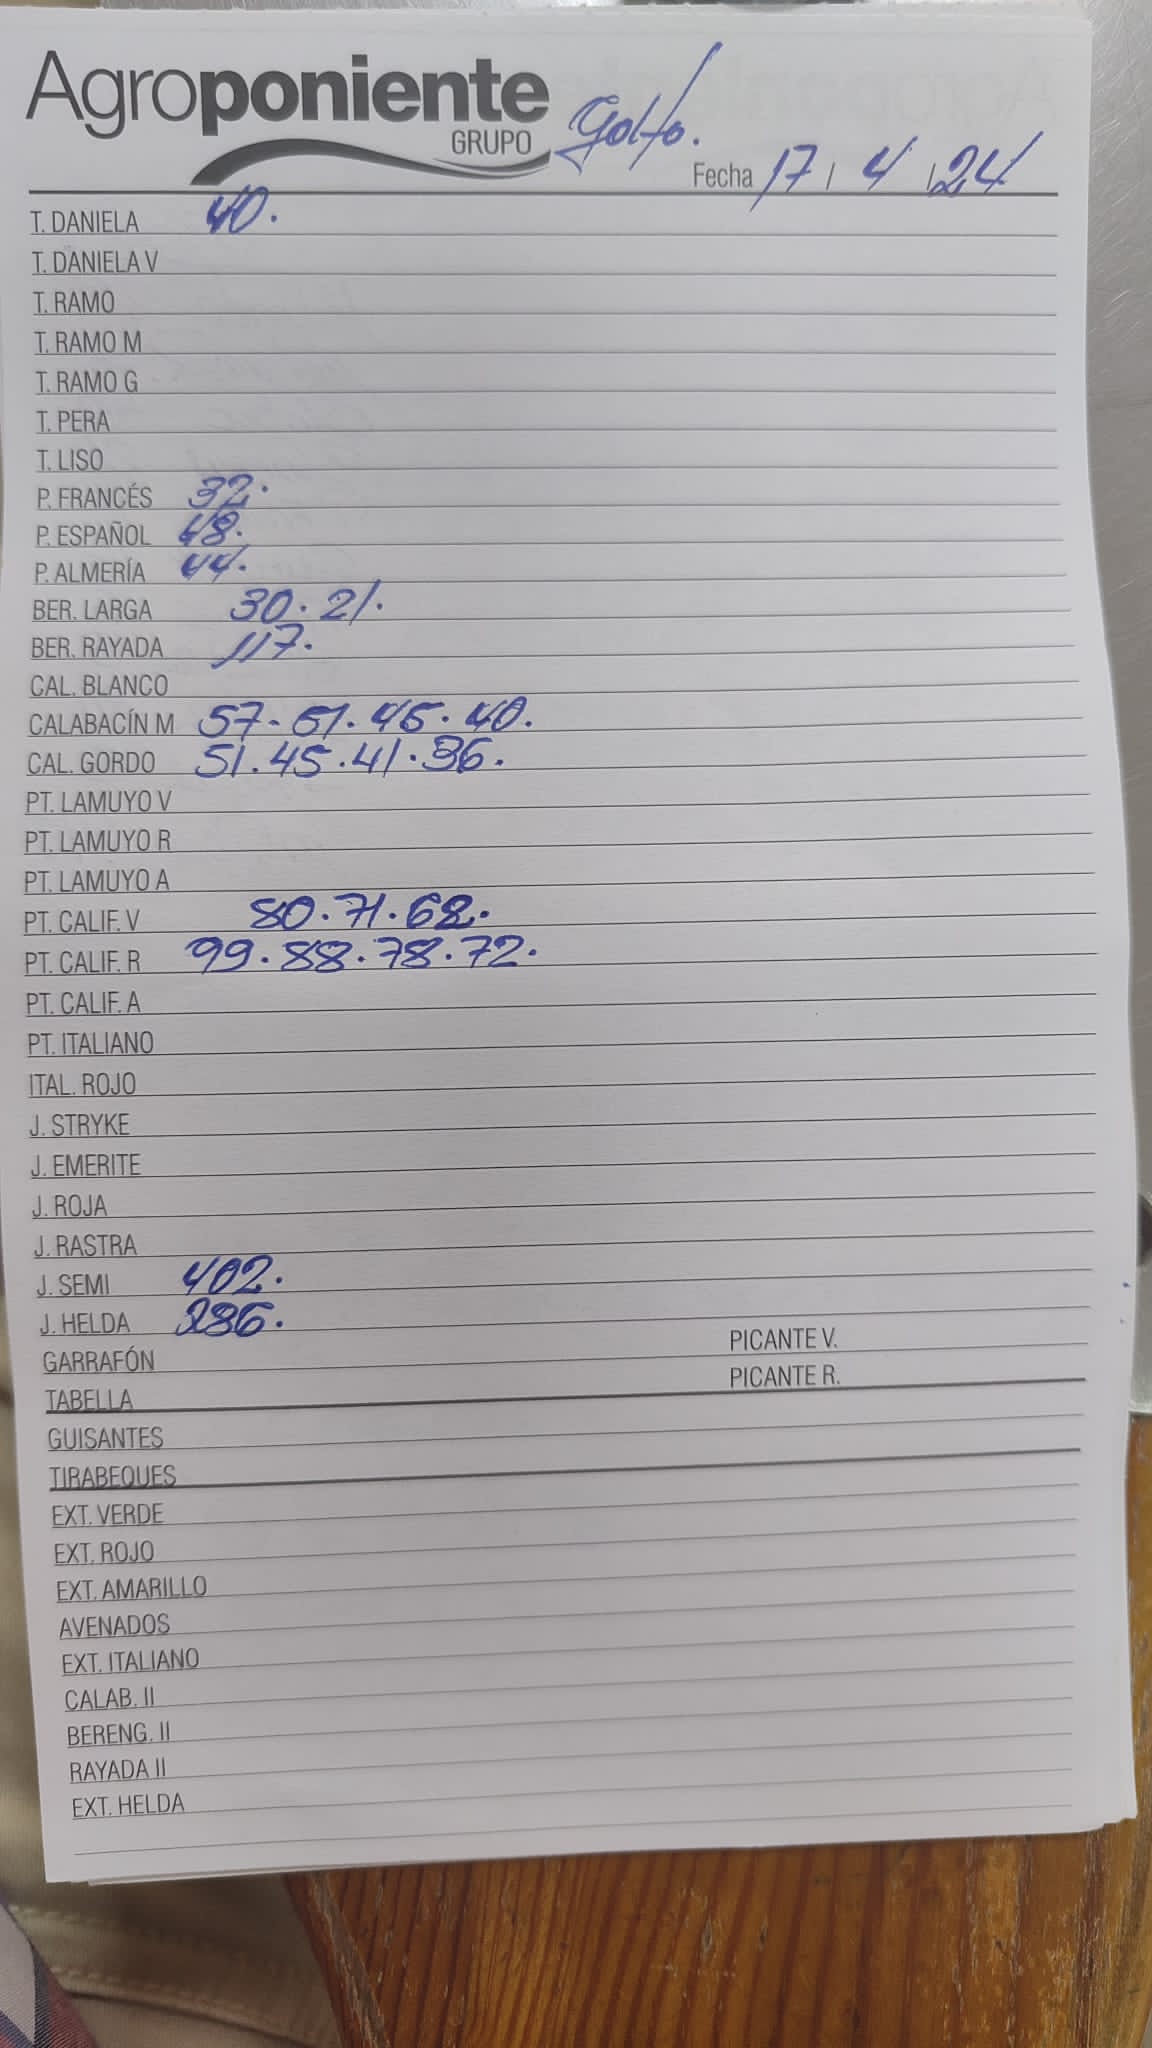 Agroponiente
GRUPO
Golfo.
Fecha 17 / 4 / 24
T. DANIELA 40.
T. DANIELA V
T. RAMO
T. RAMO M
T. RAMO G
T. PERA
T. LISO
P. FRANCÉS 32.
P. ESPAÑOL 48.
P. ALMERÍA 44.
BER. LARGA 30. 21.
BER. RAYADA 117.
CAL. BLANCO
CALABACÍN M 57- 51. 45. 40.
CAL. GORDO 51. 45. 41. 36.
PT. LAMUYO V
PT. LAMUYO R
PT. LAMUYO A
PT. CALIF. V 80. 71. 62.
PT. CALIF. R 99. 88. 78. 72.
PT. CALIF. A
PT. ITALIANO
ITAL. ROJO
J. STRYKE
J. EMERITE
J. ROJA
J. RASTRA
J. SEMI 402.
J. HELDA 286.
PICANTE V.
GARRAFÓN
PICANTE R.
TABELLA
GUISANTES
TIRABEQUES
EXT. VERDE
EXT. ROJO
EXT. AMARILLO
AVENADOS
EXT. ITALIANO
CALAB. II
BERENG. II
RAYADA II
EXT. HELDA